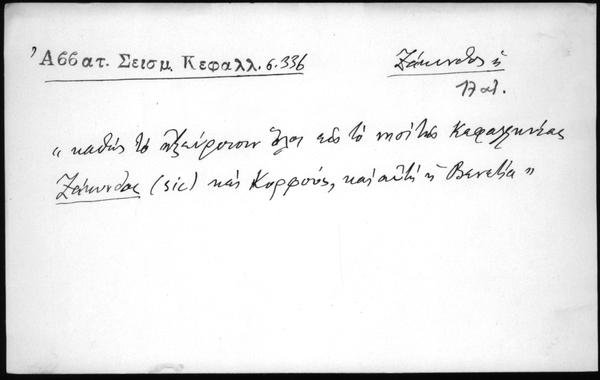 Ἀββατ. Σεισμ. Κεφαλλ. σ. 336
Ζάκυνθος ἡ
« καθώς τὸ ἠξεύρουσιν ὅλοι εἰς τὸ νησὶ τῆς Κεφαλληνίας
Ζάκυνθος (sic) καὶ Κορφούς, καὶ αὐτὴ ἡ Βενετία »